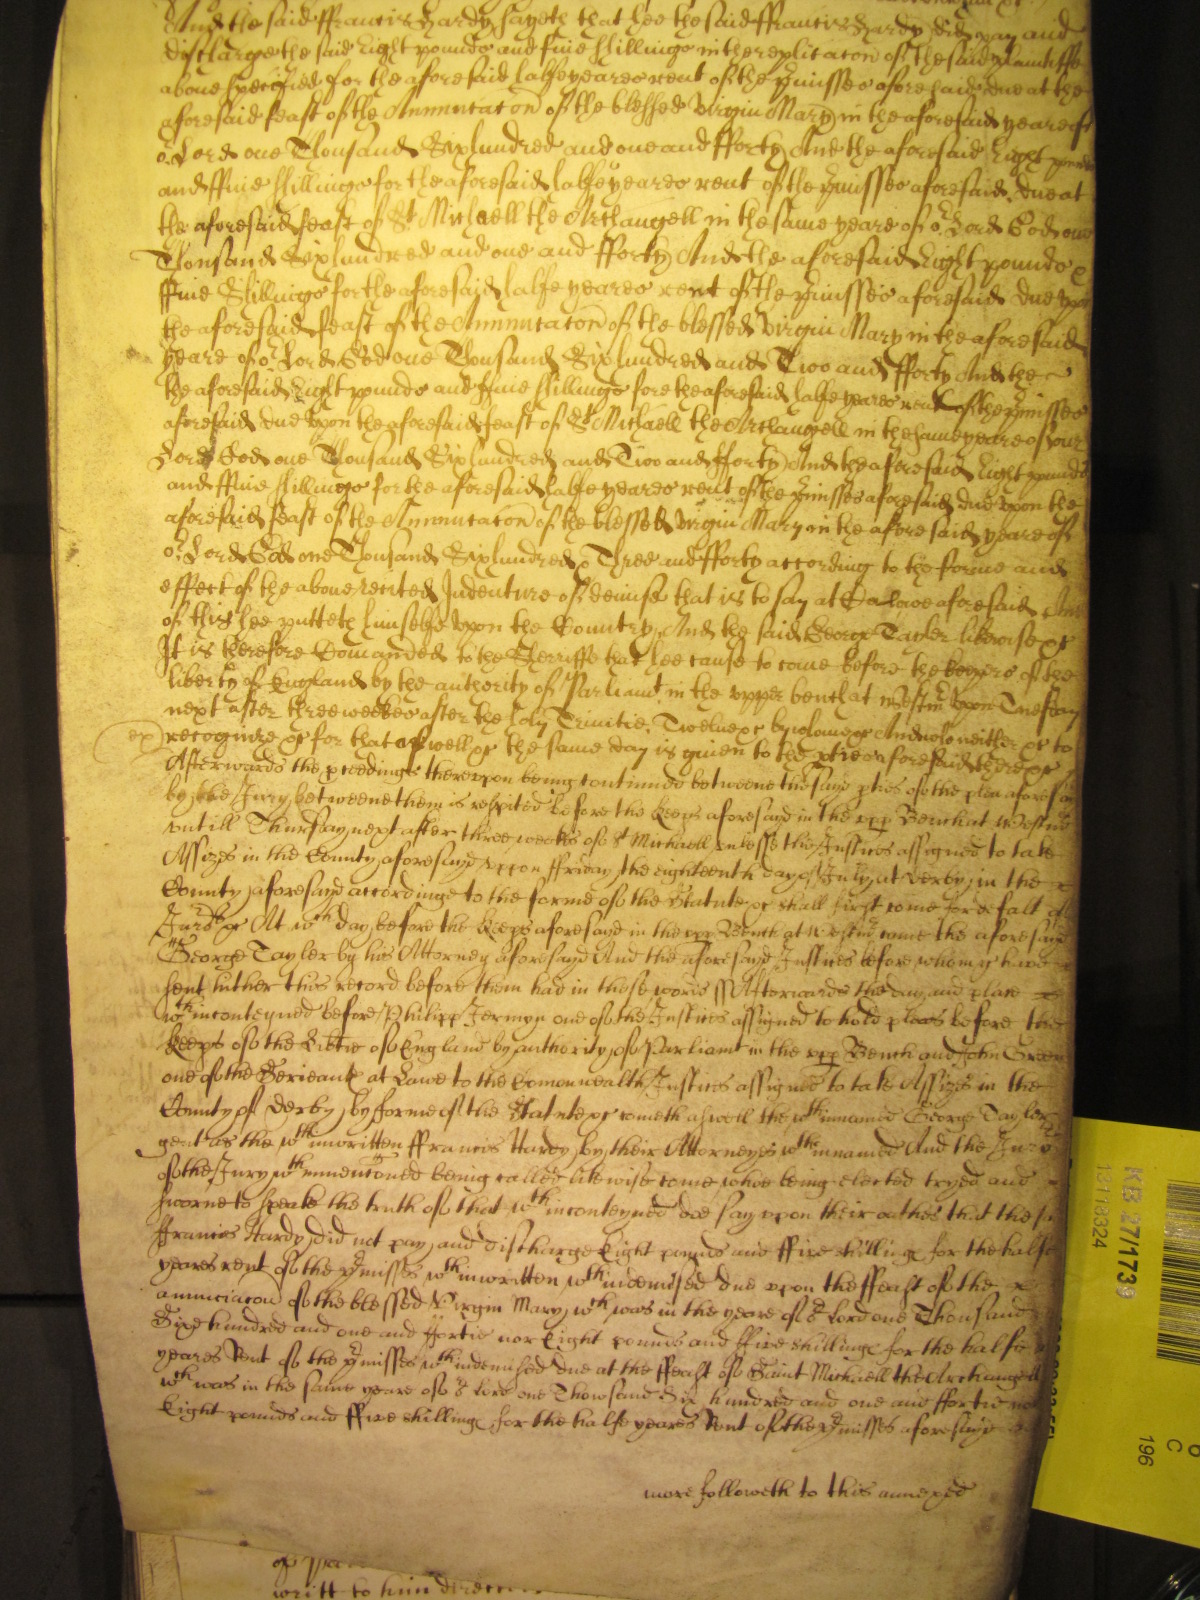 And the said ffrancis Hardy sayeth that hee the said ffrancis Hardy did pay and
discharge the said Eight pounds and five shillings in the replicacon of the said plaintiffe
above specified for the aforesaid halfe yeares rent of the pmisses aforesaid due at the
aforesaid feast of the Annunciacon of the blessed Virgin Mary in the aforesaid yeare of
or Lord one Thousand Six hundred and one and fforty And the aforesaid Eight pounds
and ffive shillings for the aforesaid halfe yeares rent of the pmisses aforesaid due at
the aforesaid feast of St Michaell the Archangell in the same yeare of or Lord God one
Thousand Six hundred and one and fforty And the aforesaid Eight pounds &
ffive Shillings for the aforesaid halfe yeares rent of the pmisses aforesaid due upon
the aforesaid feast of the Annunciacon of the blessed Virgin Mary in the aforesaid
yeare of or Lord God one Thousand Six hundred and Two and fforty And the
the aforesaid Eight pounds and ffive shillings fore the aforesaid halfe yeares rent of the pmisses
aforesaid due upon the aforesaid feast of St Michaell the Archangell in the same yeare of our
Lord God one Thousand Six hundred and Two and fforty And the aforesaid Eight pounds
and ffive shillings for the aforesaid halfe yeares rent of the pmisses aforesaid due upon the
aforesaid feast of the Annunciacon of the blessed Virgin Mary in the aforesaid yeare of
or Lord God one Thousand Six hundred & Three and fforty according to the forme and
effect of the above recited Indenture of demise that is to say at aforesaid And
of this hee putteth himselfe upon the Country And the said George Tayler likewise &c
It is therefore Comanded to the Sherriffe that hee cause to come before the keeprs of the
liberty of England by the authority of Parliamt in the upper bench at Westmr upon Tuesday
next after three weekes after the holy Trinitie Twelve &c by whome &c And who neither &c to
recognize &c for that aswell &c the same day is given to the pties aforesaid there &c
Afterwards the pceedings thereupon being continued betweene the sayd pties of the plea aforesayd
by the Jury betweene them is respited before the keeps aforesayd in the upp Bench at Westmr
untill Thursday next after three weeks of St Michaell unlesse the Justices assigned to take
Assizes in the County aforesayd uppon ffriday the eighteenth day of July at Derby in the
County aforesayd accordinge to the forme of the Statute &c shall first come for defalt of
Jurors &c At wch day before the keeps aforesayd in the upp Bench at Westmr came the aforesayd
George Tayler by his Attorney aforesayd And the aforesayd Justices before whom &c have
sent hither this record before them had in these words ss Afterwards the day and place
wthin conteyned before Philipp Jermyn one of the Justices assigned to hold pleas before the
keeps of the Libtie of England by authority of Parliamt in the upp Bench and John Green
one of the Serieants at Lawe to the Comonwealth Justices assigned to take Assizes in the
County of Derby by forme of the Statute &c cometh aswell the wthin named George Tayler
gent as the wthin written ffrancis Hardy by their Attorneys wthin named And the Jurors
of the Jury wthin menconed being called likewise come whoe being elected tryed and
sworne to speake the truth of that wthin conteyned doe say upon their oathes that the sd
ffrancis Hardy did not pay and discharge Eight pounds and ffive shillings for the halfe
yeares rent of the pmisses wthin written wthin demised due upon the ffeast of the
annunciacon of the blessed Virgin Mary wch was in the yeare of or Lord one Thousand
Sixe hundred and one and ffortie nor Eight pounds and ffive shillings for the halfe
yeares Rent of the pmisses wthin demised due at the ffeast of Saint Michaell the Archangell
wch was in the same yeare of or Lord one Thousand Six hundred and one and ffortie nor
Eight pounds and ffive shillings for the halfe yeares Rent of the pmisses aforesayd
more followeth to this annexed
writt to him
KB 27/1739
13118324
196
C